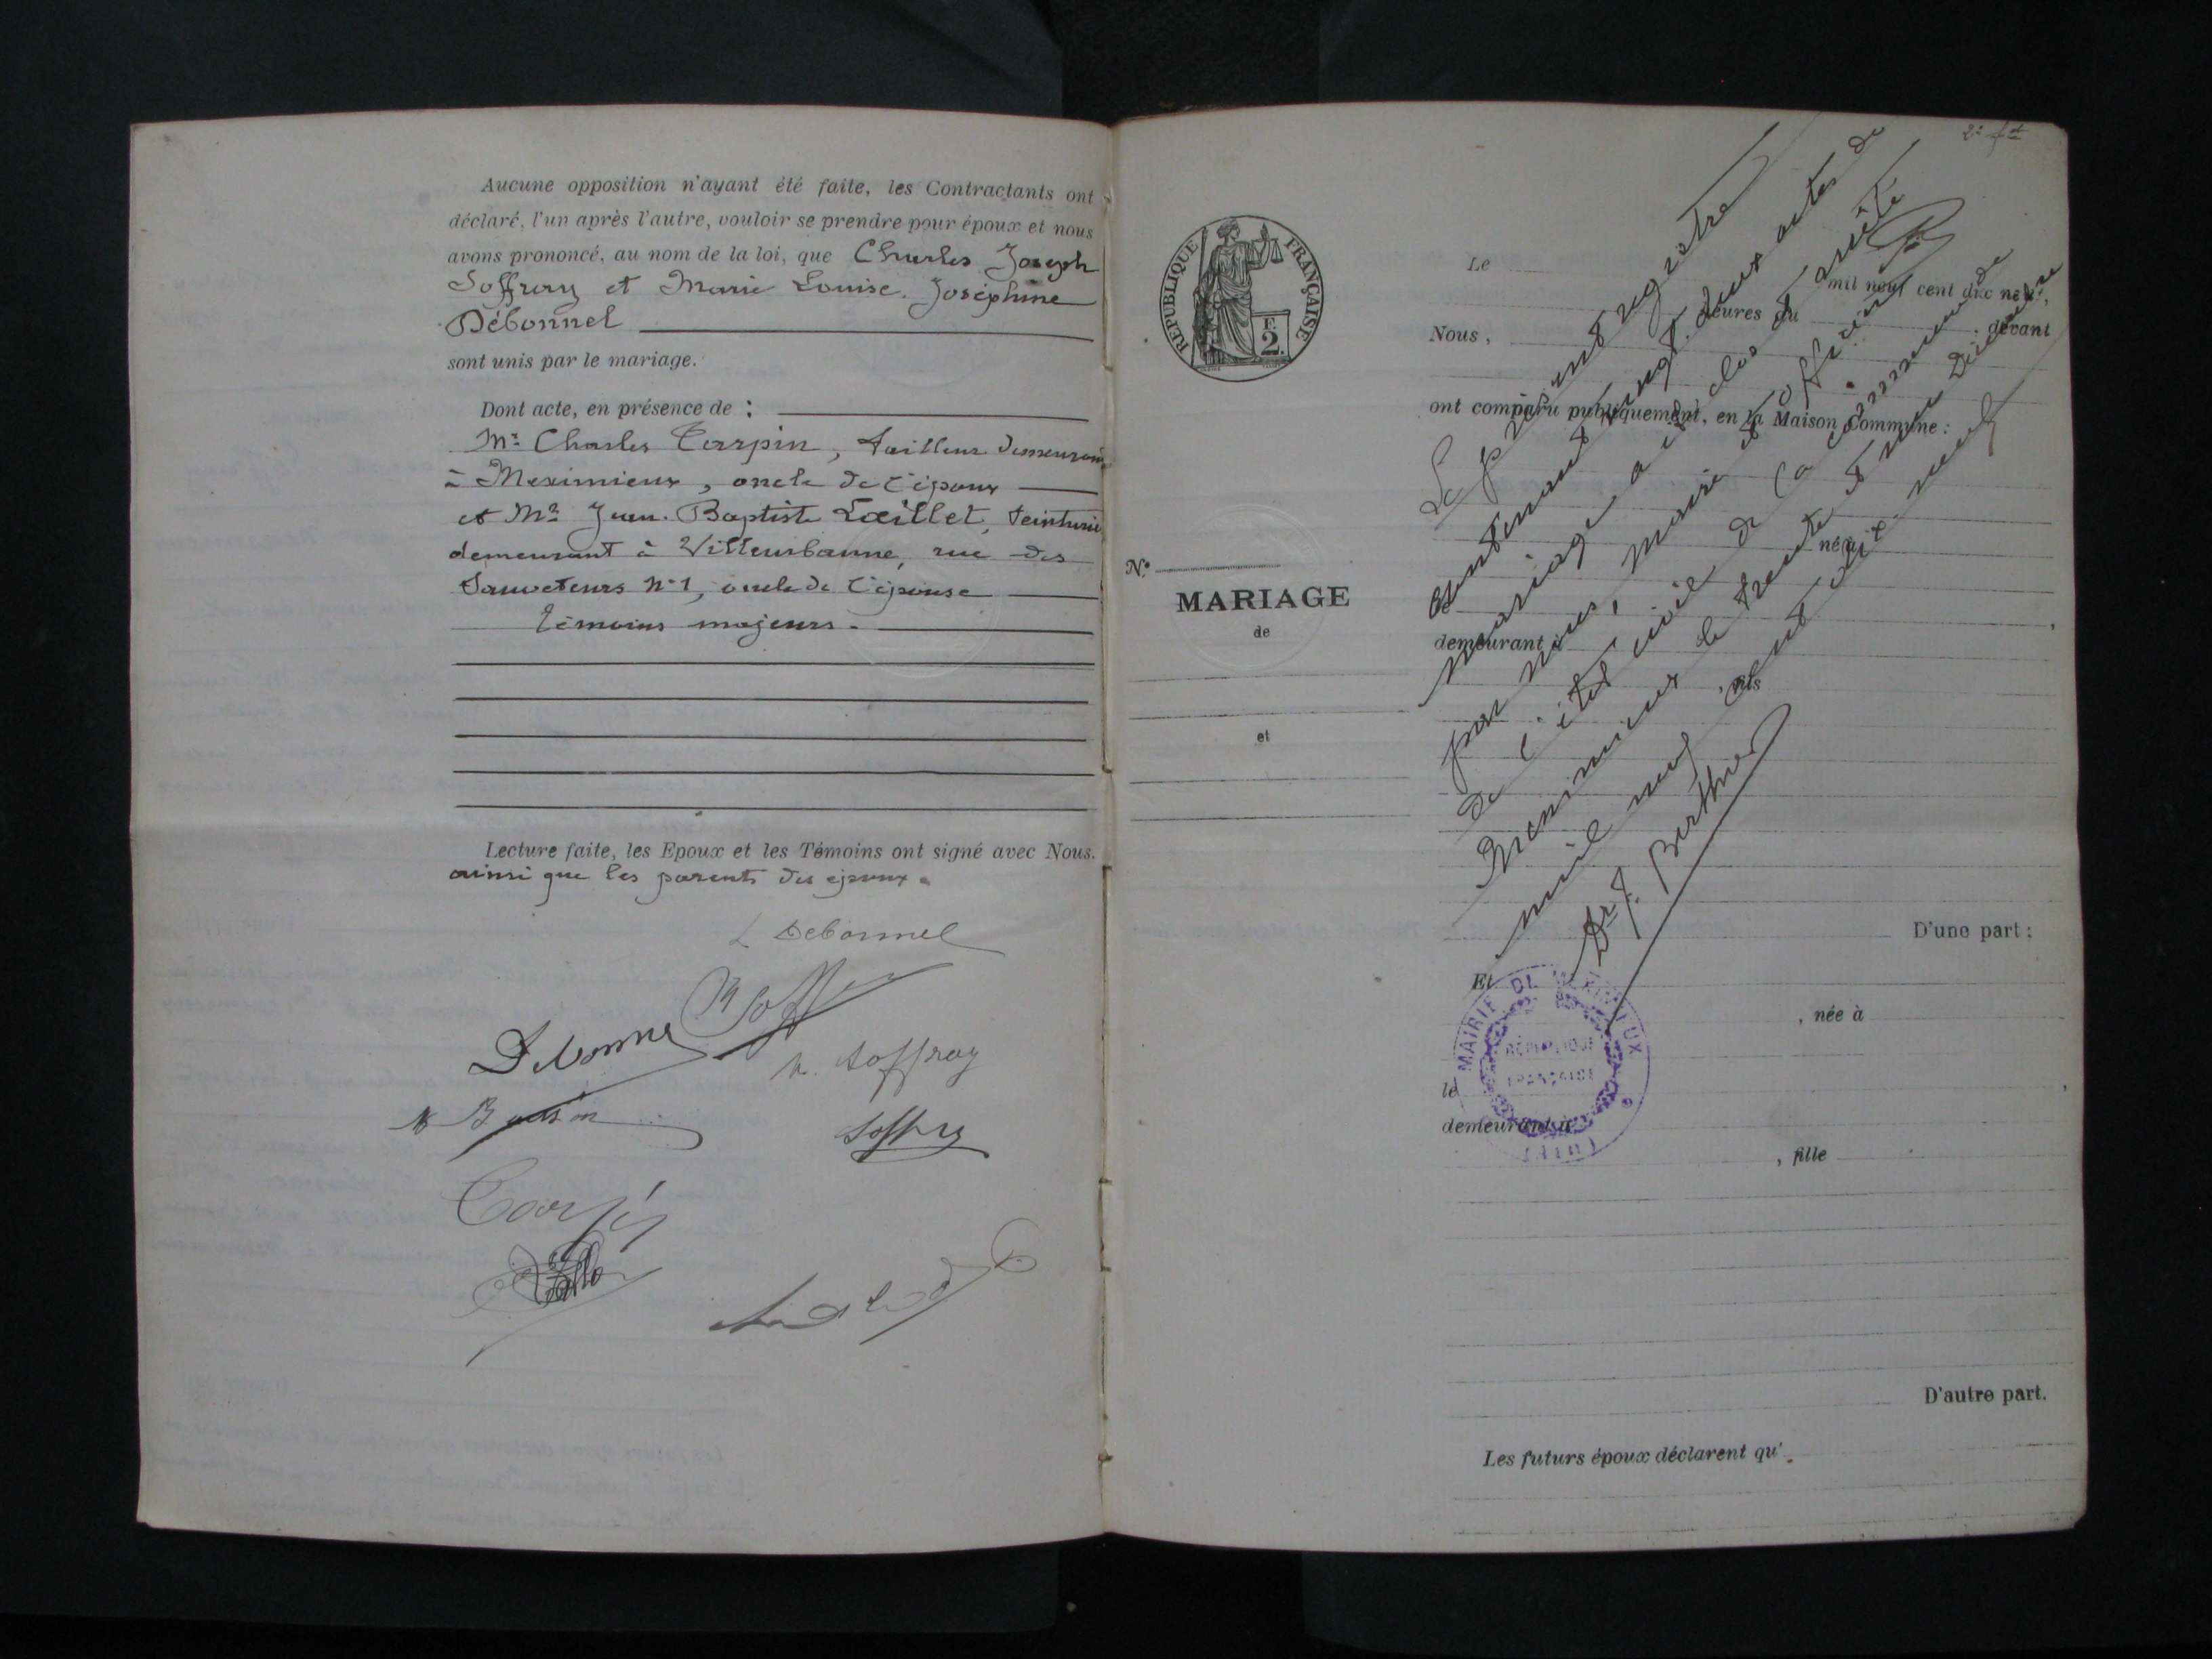 Aucune opposition n'ayant été faite, les Contractants ont
déclaré, l'un après l'autre, vouloir se prendre pour époux et nous
avons prononcé, au nom de la loi, que Charles Joseph
Soffray et Marie Louise Joséphine
Débonnel
sont unis par le mariage.
Dont acte, en présence de :
Mr Charles Carpin, tailleur demeurant
à Meximieux, oncle de l'époux
et Mr Jean-Baptiste Lœillet, teinturier
demeurant à Villeurbanne, rue des
Sauveteurs n°1, oncle de l'épouse
Témoins majeurs.
Lecture faite, les Epoux et les Témoins ont signé avec Nous.
ainsi que les parents des époux.
L Debonnel
Debonnel
Soffray
Soffray
RÉPUBLIQUE FRANÇAISE
E
2.
N°
MARIAGE
de
et
Le
mil neuf cent dix neuf,
heures du
Nous, devant
ont comparu publiquement, en la Maison Commune :
né à
le
demeurant à
, fils
D'une part ;
Et
, née à
le
demeurant à
, fille
D'autre part.
Les futurs époux déclarent qu'
Le présent registre
contenant vingt-deux actes de
mariage a été clos et arrêté
par nous, maire et officier
de l'état civil de la commune de
Meximieux le trente et un Décembre
mil neuf cent dix neuf
Dr J. Berthier
MAIRIE DE MEXIMIEUX
RÉPUBLIQUE
FRANÇAISE
(AIN)